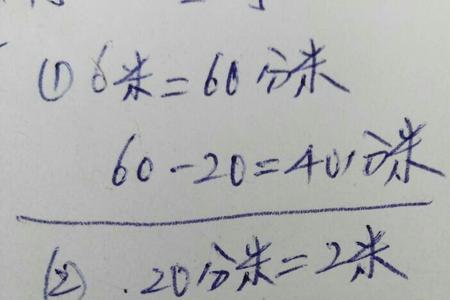 ①6米=60分米
60-20=40分米
(2).20分米=2米